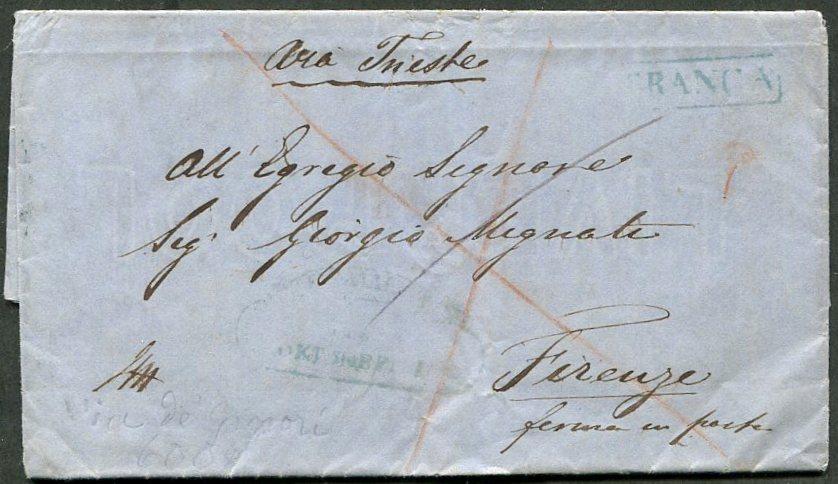 Via Trieste
FRANCA
All' Egregio Signore
Sigr Giorgio Mignati
Firenze
ferma in posta
Via de' Ginori